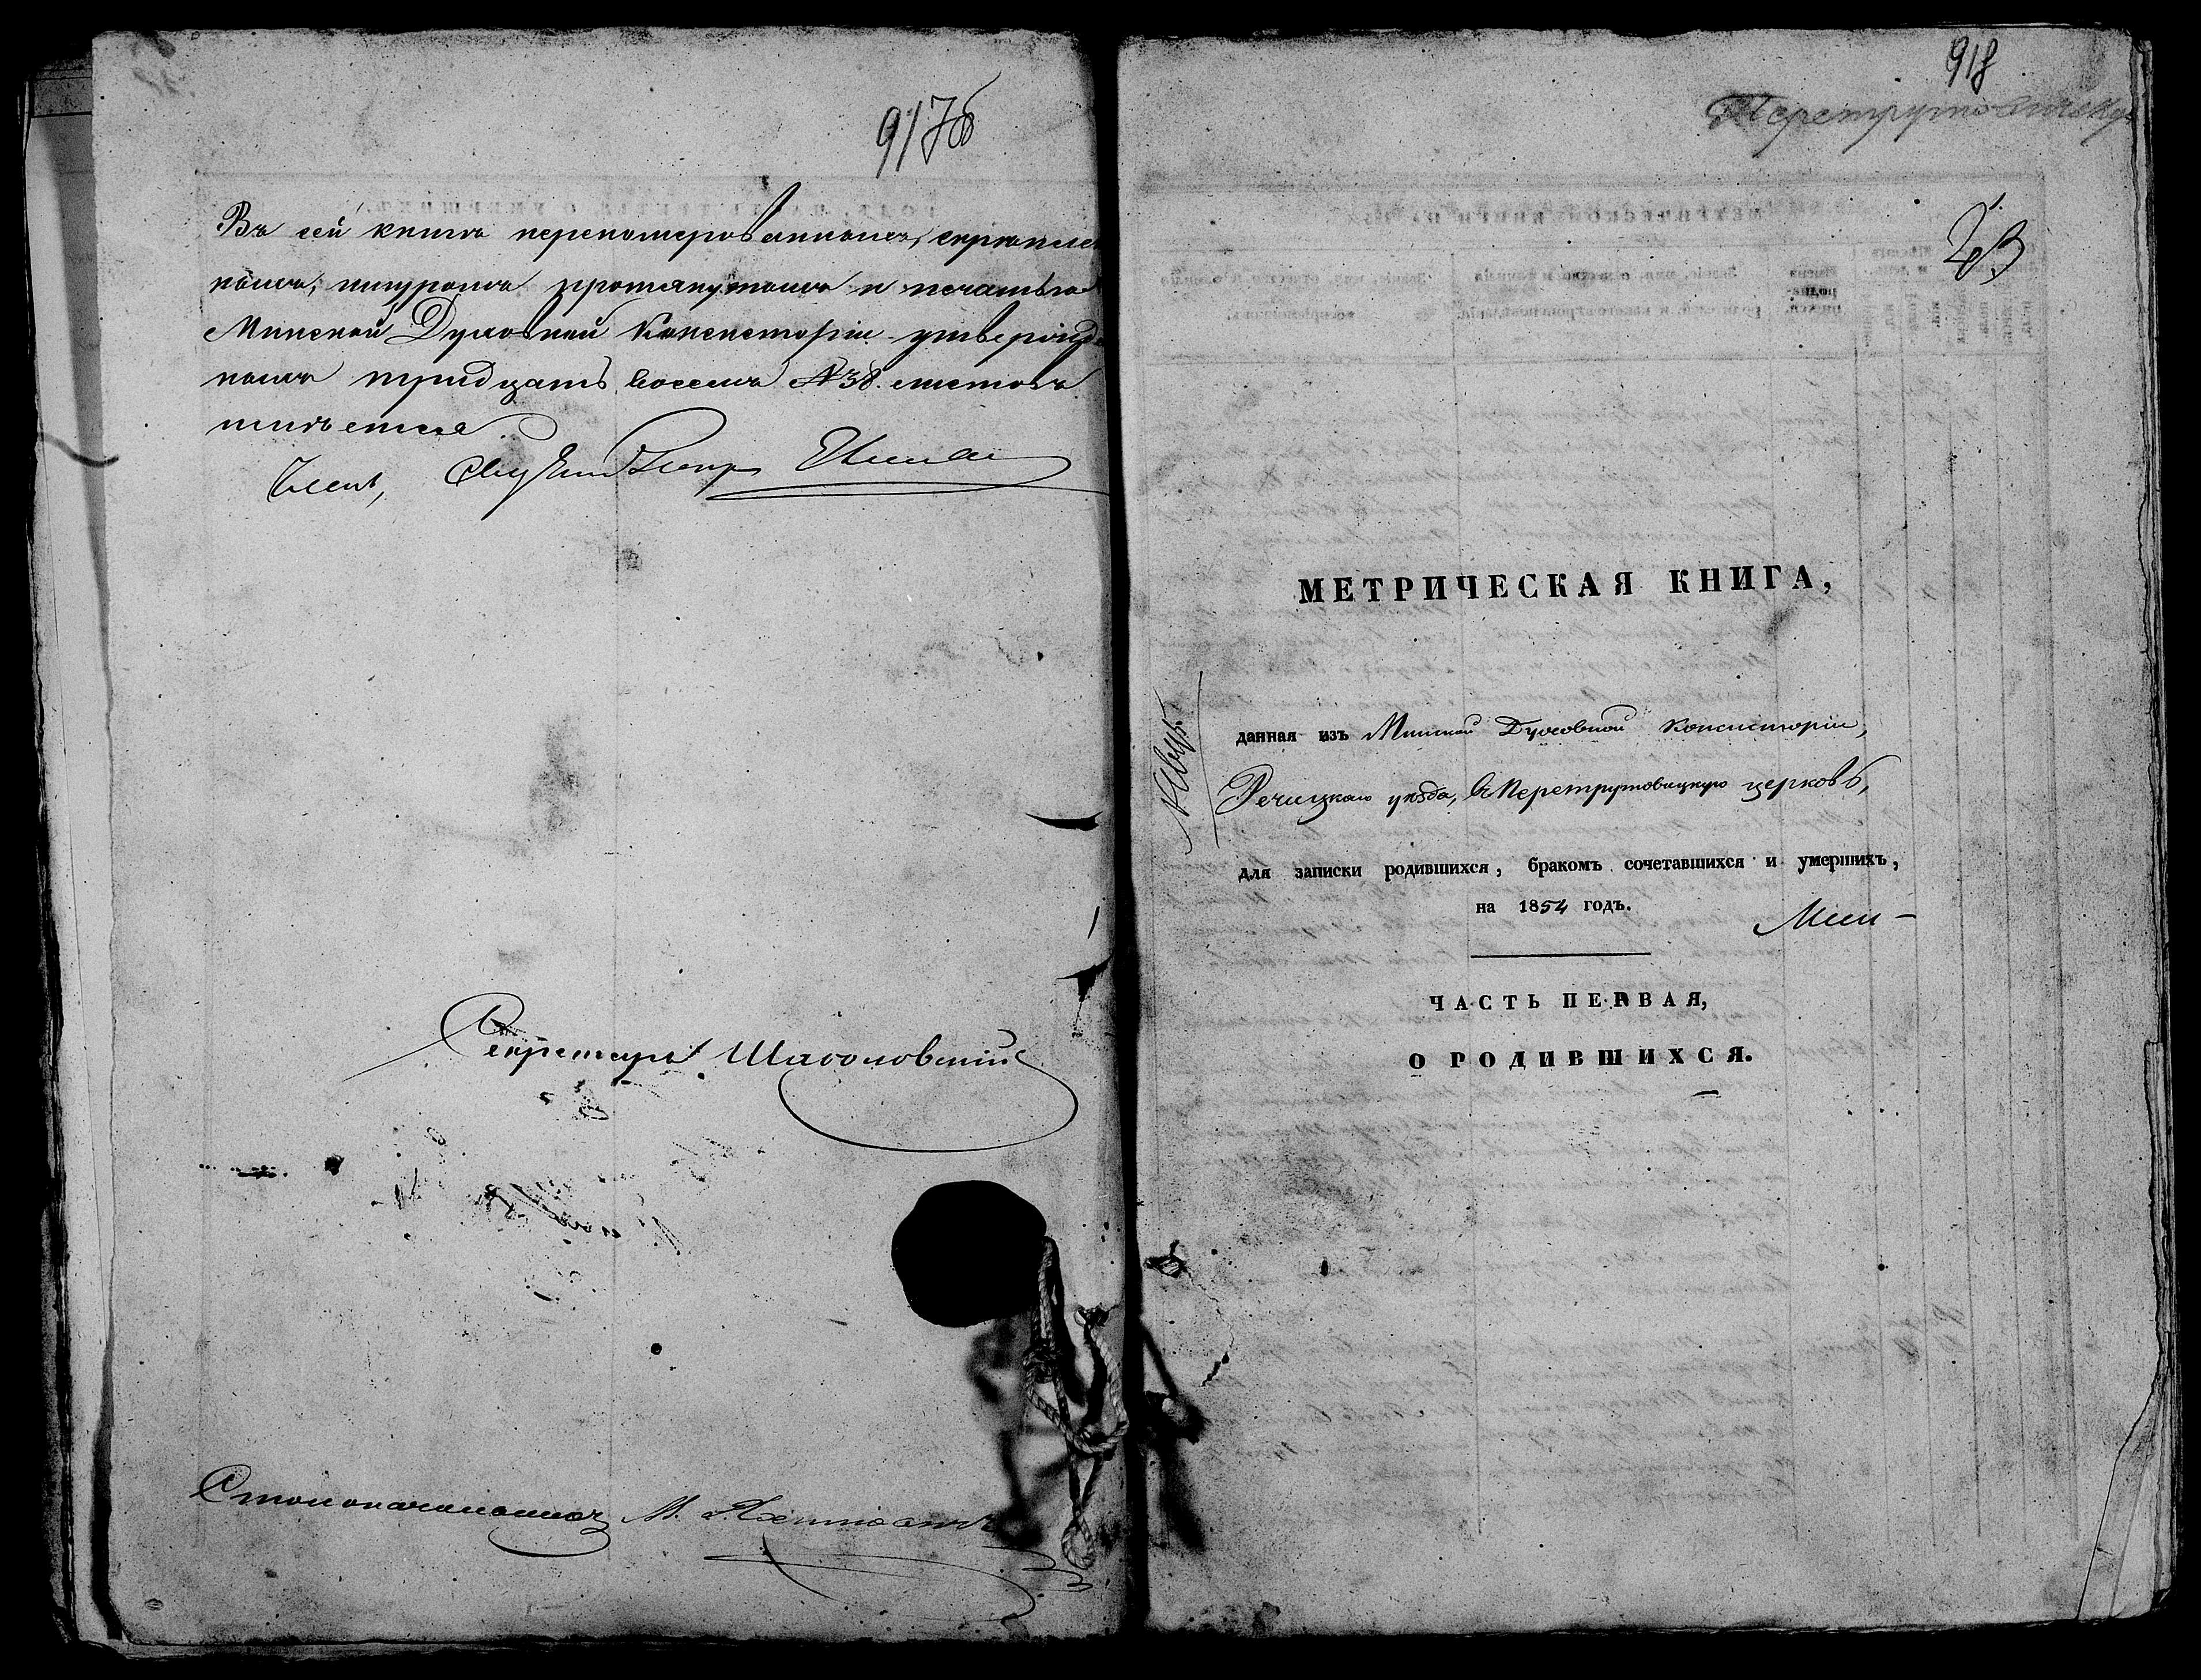 917б
Въ сей книгѣ перенумерованныхъ, скрѣплен
ныхъ, шнуромъ протянутыхъ и печатью
Минской Духовной Консисторіи утвержд
ныхъ тридцать восемь № 38. листовъ
имѣется
Членъ,
Секретарь
Столоначальникъ М.
918
Перетрутовицкую
МЕТРИЧЕСКАЯ КНИГА,
данная изъ Минской Духовной Консисторіи,
Речицкаго уѣзда, въ Перетрутовицкую церковь,
для записки родившихся, бракомъ сочетавшихся и умершихъ,
на 1854 годъ.
ЧАСТЬ ПЕРВАЯ,
О РОДИВШИХСЯ.